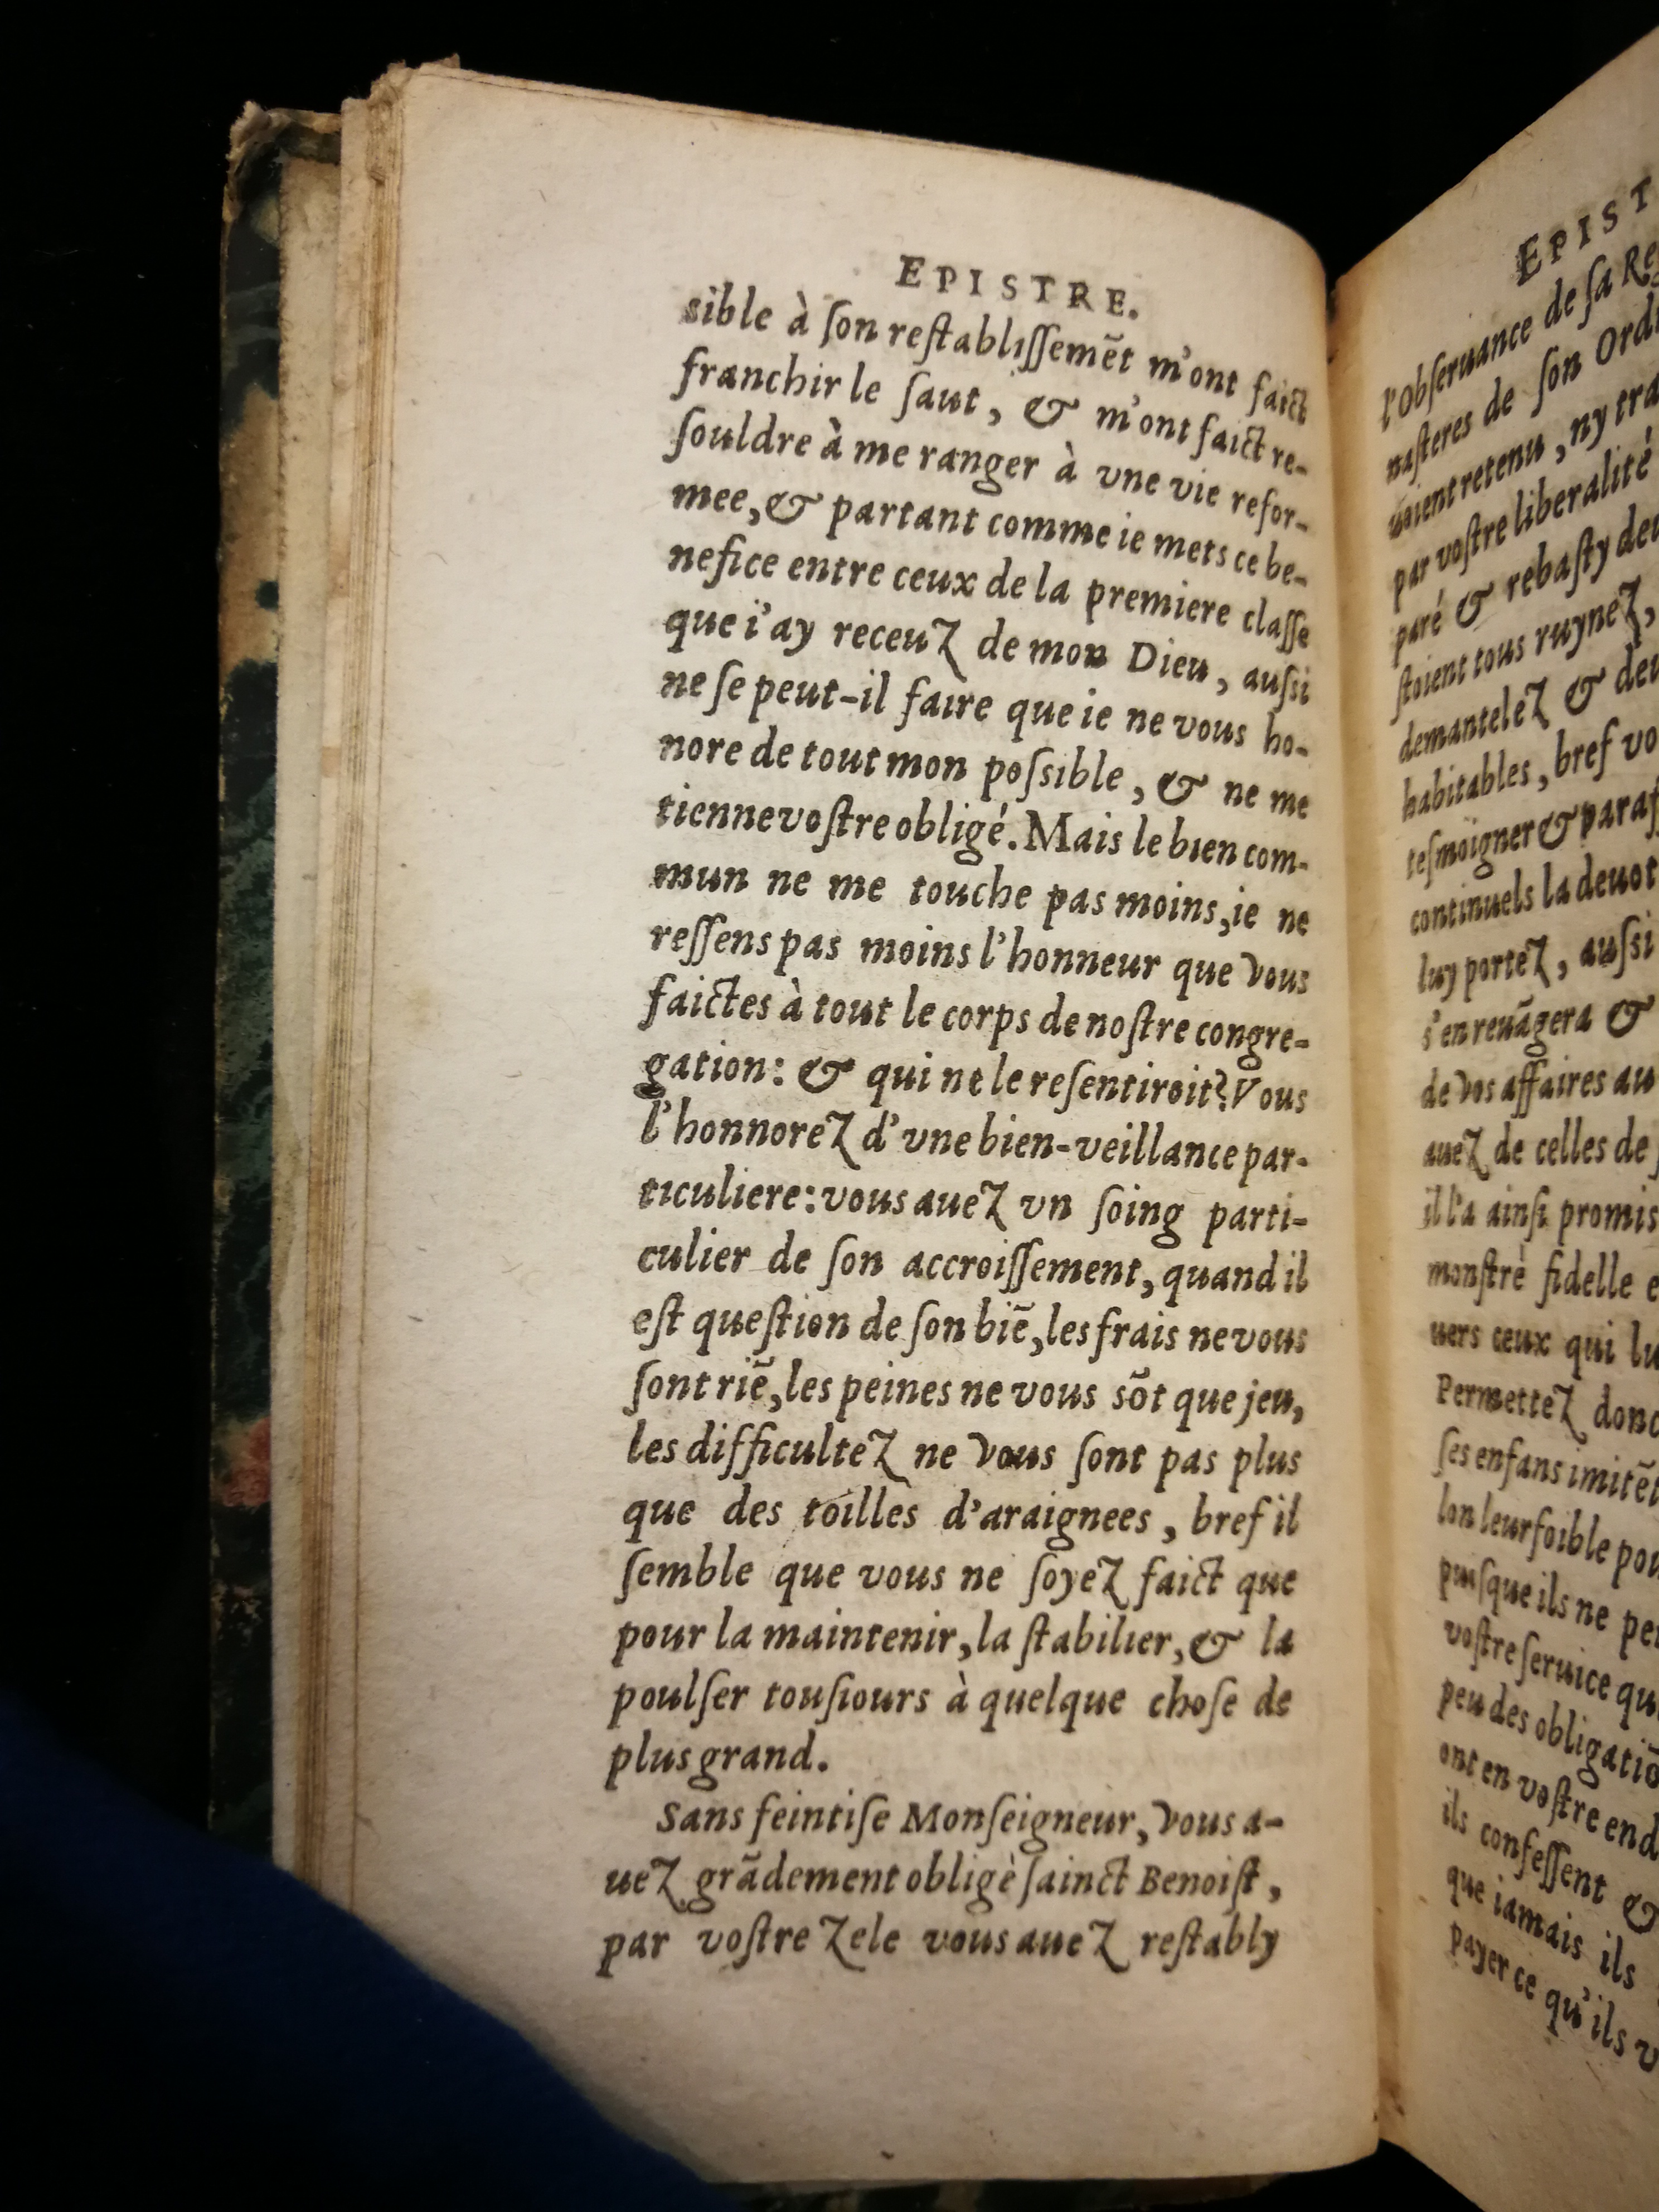 EPISTRE.
sible à ſon reſtabliſſemẽt m'ont faict
franchir le ſaut, & m'ont faict re-
ſouldre à me ranger à vne vie refor-
mee, & partant comme ie mets ce be-
nefice entre ceux de la premiere claſſe
que i'ay receuz de mon Dieu, auſsi
ne ſe peut-il faire que ie ne vous ho-
nore de tout mon poſsible, & ne me
tienne voſtre obligé. Mais le bien com-
mun ne me touche pas moins, ie ne
reſſens pas moins l'honneur que vous
faictes à tout le corps de noſtre congre-
gation: & qui ne le reſentiroit? Vous
l'honnorez d'vne bien-veillance par-
ticuliere: vous auez vn ſoing parti-
culier de ſon accroiſſement, quand il
eſt queſtion de ſon biẽ, les frais ne vous
ſont riẽ, les peines ne vous sõt que jeu,
les difficultez ne vous ſont pas plus
que des toilles d'araignees, bref il
ſemble que vous ne ſoyez faict que
pour la maintenir, la ſtabilier, & la
poulſer touſiours à quelque choſe de
plus grand.
Sans feintiſe Monſeigneur, vous a-
uez grãdement obligè ſainct Benoiſt,
par voſtre zele vous auez reſtably
EPIST
l'Obſeruance de ſa Re
naſteres de ſon Ord
uoient retenu, ny tra
par voſtre liberalité
paré & rebaſty de
ſtoient tous ruynez,
demantelez & de
habitables, bref vo
teſmoigner & paraf
continuels la deuot
luy portez, auſsi
s'en reuãgera &
de vos affaires au
auez de celles de
il l'a ainſi promis
monſtrè fidelle e
uers ceux qui lu
Permettez donc
ſes enfans imitẽt
lon leur foible pou
puiſque ils ne pe
voſtre ſeruice qu
peu des obligatiõ
ont en voſtre end
ils confeſſent &
que iamais ils
payer ce qu'ils v